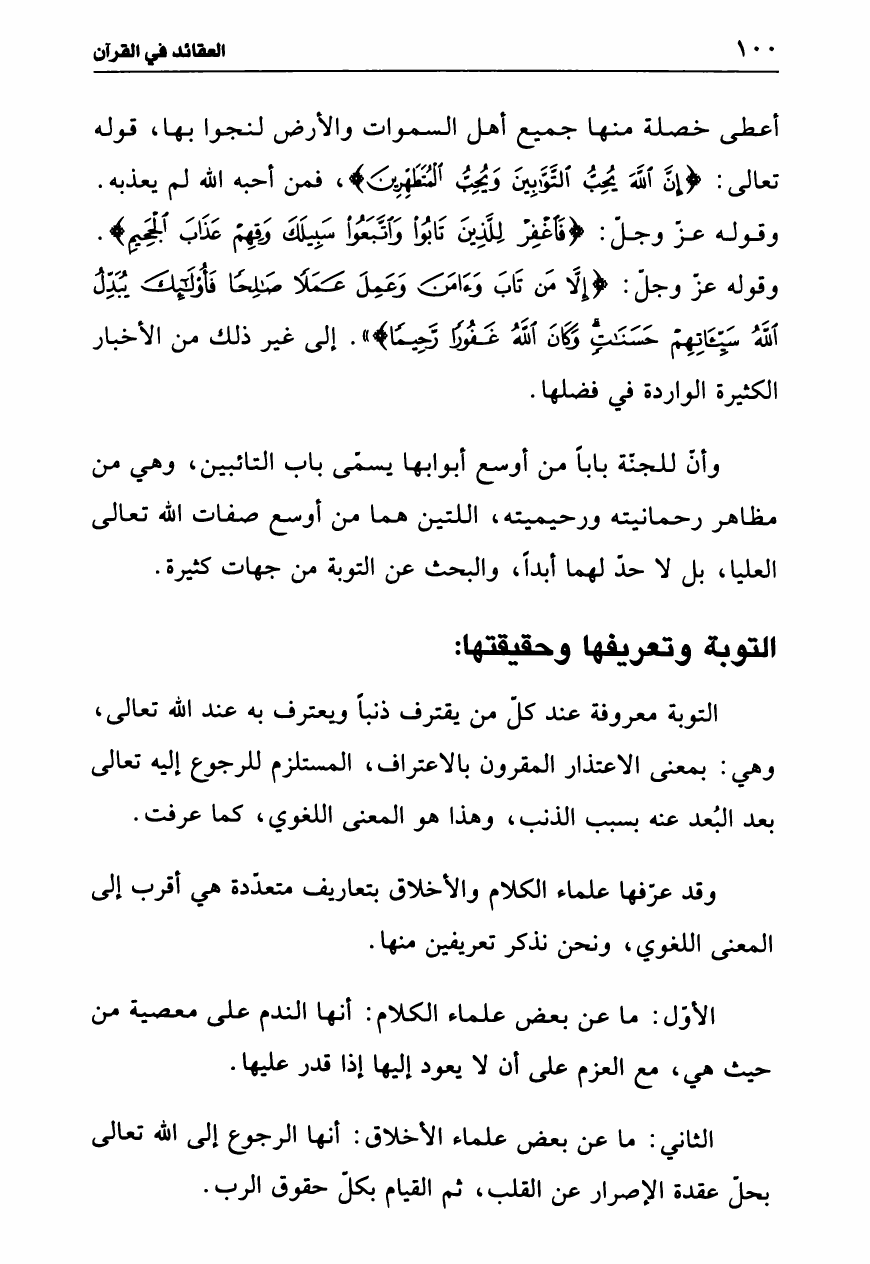 ١٠٠ العقائد في القرآن
أعطى خصلة منها جميع أهل السموات والأرض لنجوا بها، قوله
تعالى: ﴿إِنَّ ٱللَّهَ يُحِبُّ ٱلتَّوَّٰبِينَ وَيُحِبُّ ٱلْمُتَطَهِّرِينَ﴾، فمن أحبه الله لم يعذبه.
وقوله عزّ وجلّ: ﴿فَٱغْفِرْ لِلَّذِينَ تَابُوا۟ وَٱتَّبَعُوا۟ سَبِيلَكَ وَقِهِمْ عَذَابَ ٱلْجَحِيمِ﴾.
وقوله عزّ وجلّ: ﴿إِلَّا مَن تَابَ وَءَامَنَ وَعَمِلَ عَمَلًا صَٰلِحًا فَأُو۟لَٰٓئِكَ يُبَدِّلُ
ٱللَّهُ سَيِّـَٔاتِهِمْ حَسَنَٰتٍ ۗ وَكَانَ ٱللَّهُ غَفُورًا رَّحِيمًا﴾». إلى غير ذلك من الأخبار
الكثيرة الواردة في فضلها.
وأنّ للجنّة باباً من أوسع أبوابها يسمّى باب التائبين، وهي من
مظاهر رحمانيته ورحيميته، اللتين هما من أوسع صفات الله تعالى
العليا، بل لا حدّ لهما أبداً، والبحث عن التوبة من جهات كثيرة.
التوبة وتعريفها وحقيقتها:
التوبة معروفة عند كلّ من يقترف ذنباً ويعترف به عند الله تعالى،
وهي: بمعنى الاعتذار المقرون بالاعتراف، المستلزم للرجوع إليه تعالى
بعد البُعد عنه بسبب الذنب، وهذا هو المعنى اللغوي، كما عرفت.
وقد عرّفها علماء الكلام والأخلاق بتعاريف متعدّدة هي أقرب إلى
المعنى اللغوي، ونحن نذكر تعريفين منها.
الأوّل: ما عن بعض علماء الكلام: أنها الندم على معصية من
حيث هي، مع العزم على أن لا يعود إليها إذا قدر عليها.
الثاني: ما عن بعض علماء الأخلاق: أنها الرجوع إلى الله تعالى
بحلّ عقدة الإصرار عن القلب، ثم القيام بكلّ حقوق الرب.